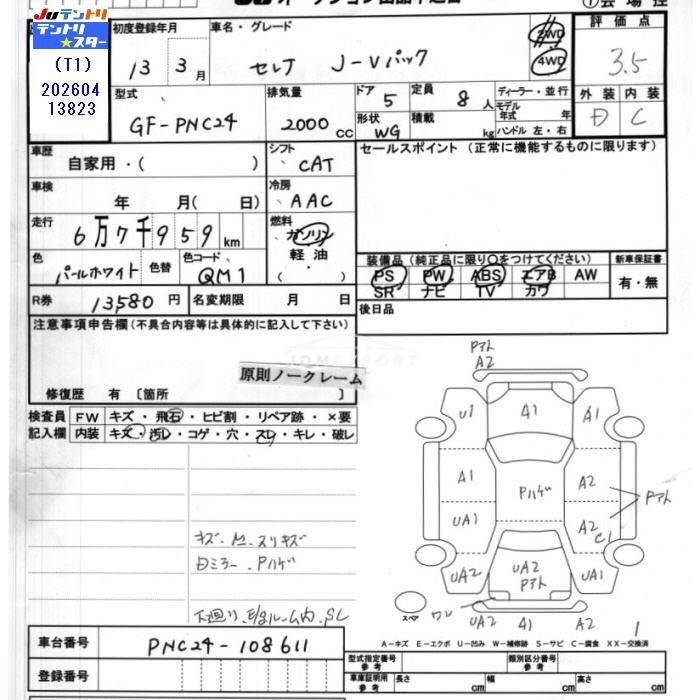 JUテントリ
テントリ★スター
(T1)
202604
13823
初度登録年月
車名・グレード
2WD
4WD
評価点
13 3月
セレナ J-Vパック
3.5
型式
排気量
ドア 5
定員 8人
ディーラー・並行
モデル年式 年
外装
内装
GF-PNC24
2000cc
形状 WG
積載 kg
ハンドル 左・右
D
C
車歴
自家用・( )
シフト
CAT
セールスポイント (正常に機能するものに限ります)
車検
年 月( 日)
冷房
AAC
走行
6万7千959km
燃料
ガソリン
軽油
( )
色
パールホワイト
色替
色コード
QM1
装備品 (純正品に限り○をつけてください)
新車保証書
PS PW ABS エアB AW
SR ナビ TV カワ
有・無
R券 13580円
名変期限 月 日
後日品
注意事項申告欄(不具合内容等は具体的に記入して下さい)
JDMEXPORT
原則ノークレーム
修復歴 有 [箇所 ]
検査員
記入欄
FW キズ・飛石・ヒビ割・リペア跡・×要
内装 キズ・汚レ・コゲ・穴・スレ・キレ・破レ
Pアト
A2
U1
A1
A1
A1
Pハゲ
A2
Pアト
UA1
A2
C1
UA2
UA2
Pアト
UA1
スペア
ワレ
UA2
A1
A2
1
キズ・M・スリキズ
Dミラー・Pハゲ
下廻り、E/gルーム内、SC
A-キズ E-エクボ U-凹み W-補修跡 S-サビ C-腐食 XX-交換済
車台番号
PNC24-108611
型式指定番号
参考
類別区分番号
参考
登録番号
車庫証明用
参考
長さ cm
幅 cm
高さ cm